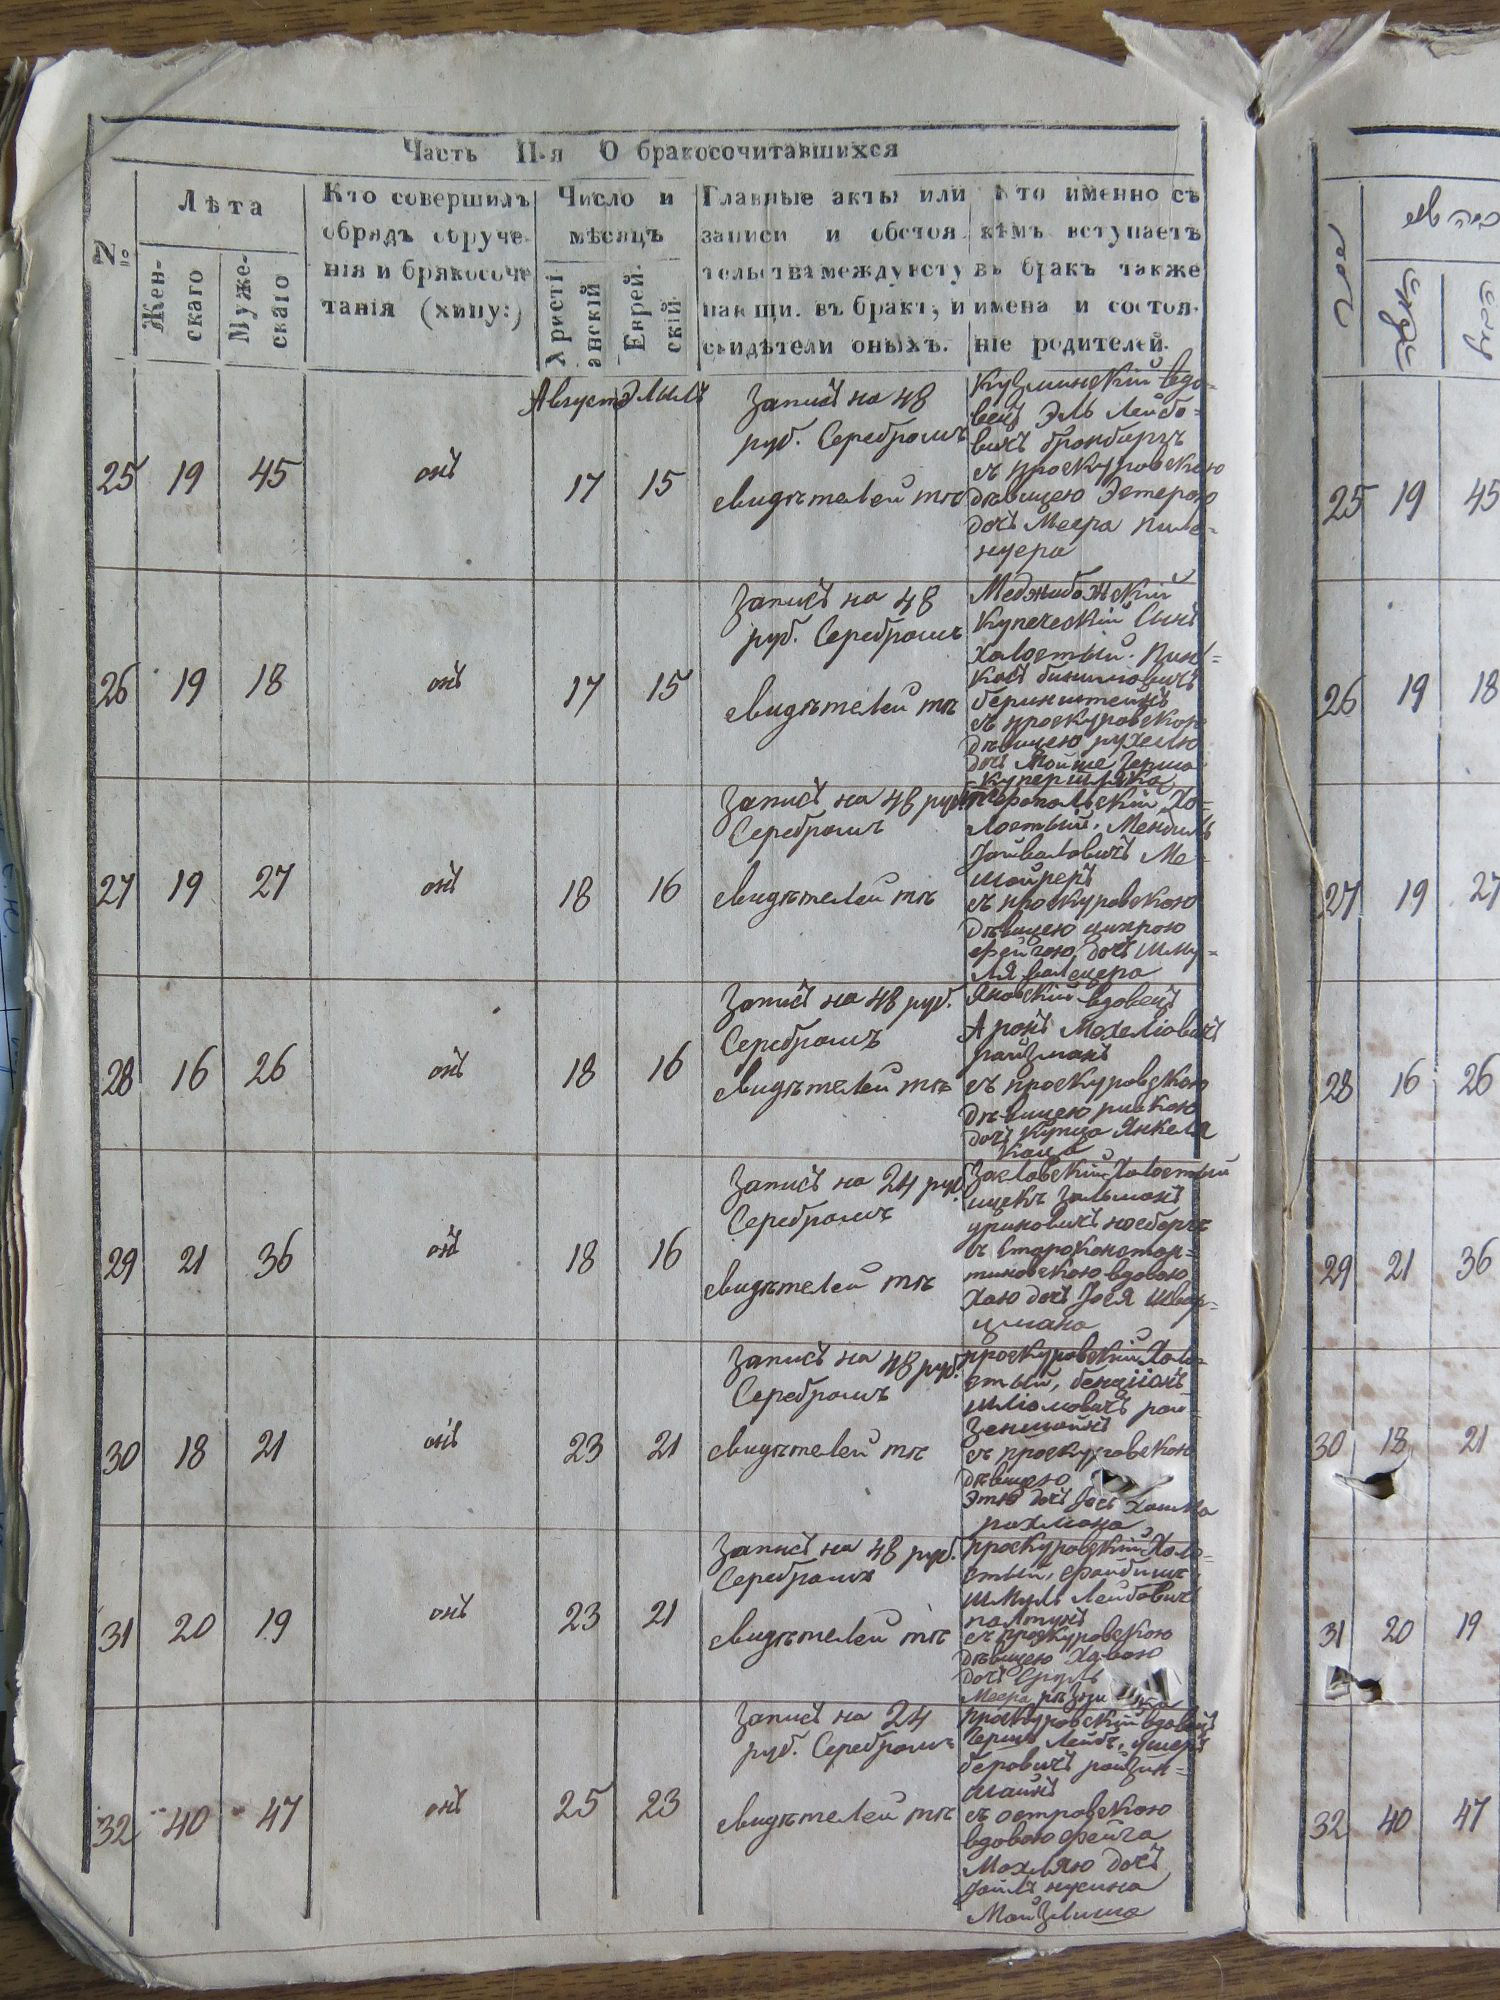 Часть II-я О бракосочитавшихся
№
Лѣта
Жен-
скаго
Муже-
скаго
Кто совершилъ
обрядъ обруче-
нія и бракосоче
танія (хипу:)
Число и
мѣсяцъ
Христі
анскій
Еврей-
скій
Главные акты или
записи и обстоя
тельства между всту
пающи. въ бракъ, и
свидѣтели оныхъ.
Кто именно съ
кѣмъ вступаетъ
въ бракъ также
имена и состоя-
ніе родителей.
Августъ Элылъ
25 19 45 онъ 17 15
Запись на 48
руб. Серебромъ
свидѣтелей тѣ
Кузминскій вдо-
вецъ Эль Лейбо-
вичъ бронбергъ
съ проскуровскою
дѣвицею Эстерою
дочь Меера
26 19 18 онъ 17 15
Запись на 48
руб. Серебромъ
свидѣтелей тѣ
Меджибожскій
Купеческій Сынъ
Холостый. Пин-
беринштейнъ
съ проскуровскою
дѣвицею рухлею
дочь Мойше Герша
27 19 27 онъ 18 16
Запись на 48 руб.
Серебромъ
свидѣтелей тѣ
Хо-
лостый, Мендиль
съ проскуровскою
дѣвицею
фейгою дочь Шму-
ля
28 16 26 онъ 18 16
Запись на 48 руб.
Серебромъ
свидѣтелей тѣ
Яновскій вдовецъ
Аронъ
райзманъ
съ проскуровскою
дѣвицею ривкою
дочь Купца Янкеля
Каца
29 21 36 онъ 18 16
Запись на 24 руб.
Серебромъ
свидѣтелей тѣ
Заславскій Холостый
ицекъ Зальманъ
съ Староконстан-
тиновскою вдовою
Хаю дочь Іося Швар-
цмана
30 18 21 онъ 23 21
Запись на 48 руб.
Серебромъ
свидѣтелей тѣ
проскуровскій Холо-
стый, бенціонъ
шліомовичъ рой-
съ проскуровскою
дѣвицею
Этею дочь Іось
рохмана
31 20 19 онъ 23 21
Запись на 48 руб.
Серебромъ
свидѣтелей тѣ
проскуровскій Холо-
стый, файбишъ
шмуль Лейбовичъ
съ проскуровскою
дѣвицею Хавою
дочь Сруль
Меера
32 40 47 онъ 25 23
Запись на 24
руб. Серебромъ
свидѣтелей тѣ
проскуровскій вдовецъ
Гершъ Лейбъ
беровичъ
съ островскою
вдовою фейга
Махлею дочь
25 19 45
26 19 18
27 19 27
28 16 26
29 21 36
30 18 21
31 20 19
32 40 47